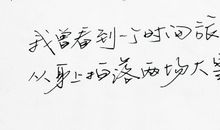 我曾看到一个时间旅
从身上拍落两场大雪